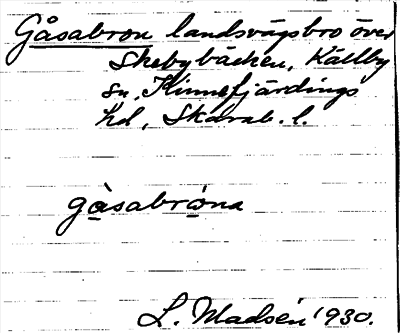 Gåsabron landsvägsbro över
Skebybäcken, Källby
sn, Kinnefjärdings
hd, Skarab. l.
gåsabrona
L. Madsén 1930.